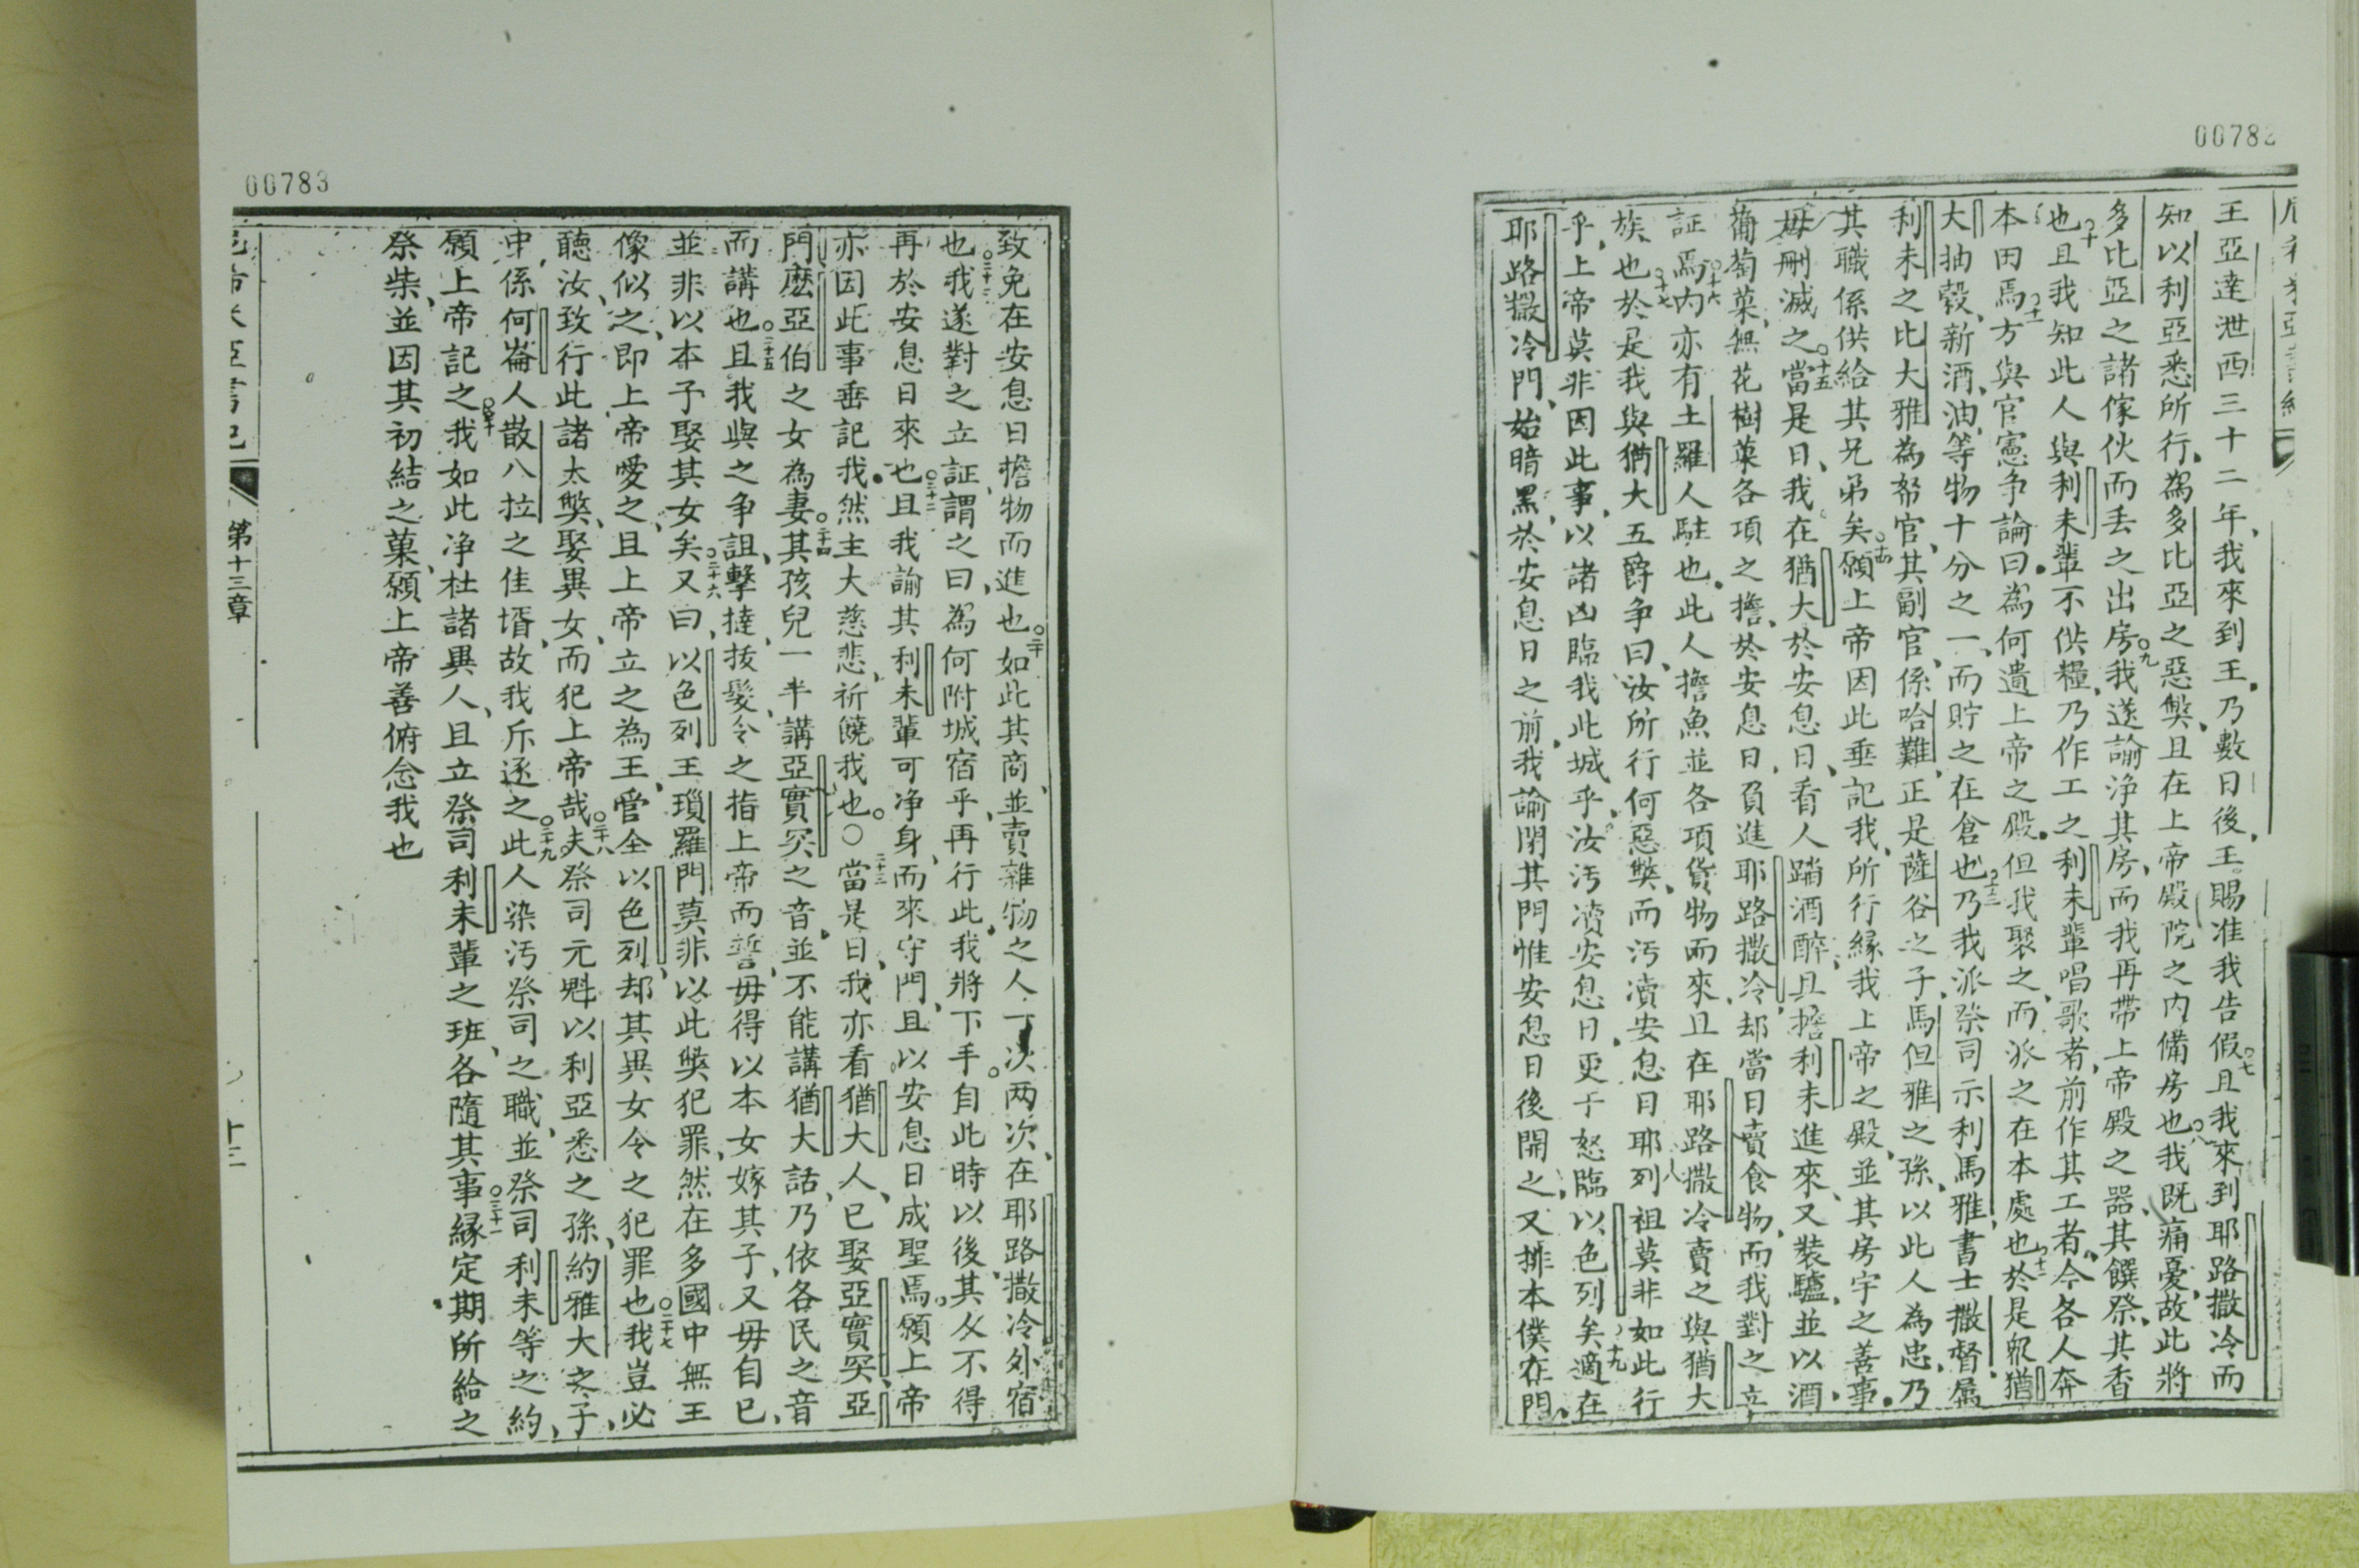 00782
王亞達泄西三十二年、我來到王、乃數日後、王賜准我告假○七且我來到耶路撒冷而
知以利亞悉所行、為多比亞之惡獘、且在上帝殿院之內備房也○八我既痛憂、故此將
多比亞之諸傢伙而丢之出房○九我遂諭淨其房、而我再帶上帝殿之器、其饌祭、其香
也○十且我知此人與利未輩不供糧、乃作工之利未輩唱歌者、前作其工者、今各人奔
本田焉○十一方與官憲爭論曰、為何遺上帝之殿、但我聚之、而派之在本處也○十二於是衆猶
大抽穀、新酒、油、等物十分之一、而貯之在倉也○十三乃我派祭司示利馬雅、書士撒督、屬
利未之比大雅為帑官、其副官、係哈難、正是薩谷之子、馬但雅之孫、以此人為忠、乃
其職係供給其兄弟矣○十四願上帝因此垂記我、所行緣我上帝之殿、並其房宇之善事、
毋刪滅之○十五當是日、我在猶大於安息日、看人踏酒醡、且擔利未進來、又裝驢、並以酒、
葡萄菓、無花樹菓各項之擔、於安息日、負進耶路撒冷、却當日賣食物、而我對之立
証焉○十六內亦有土羅人駐也、此人擔魚並各項貨物而來、且在耶路撒冷賣之與猶大
族也○十七於是我與猶大五爵爭曰、汝所行何惡獘、而汚瀆安息日耶○十八列祖莫非如此行
乎、上帝莫非因此事、以諸凶臨我此城乎、汝汚瀆安息日、更于怒臨以色列矣○十九適在
耶路撒冷門、始暗黑、於安息日之前、我諭閉其門惟安息日後開之、又排本僕在門、
00783
致免在安息日擔物而進也○二十如此其商、並賣雜物之人、一次两次、在耶路撒冷外宿
也○二十一我遂對之立証、謂之曰、為何附城宿乎、再行此、我將下手、自此時以後、其仌不得
再於安息日來也○二十二且我諭其利未輩可淨身、而來守門、且以安息日成聖焉、願上帝
亦因此事垂記我、然主大慈悲、祈饒我也○○二十三當是日、我亦看猶大人、已娶亞實突、亞
門、麼亞伯之女為妻○二十四其孩兒一半講亞實突之音、並不能講猶大話、乃依各民之音
而講也○二十五且我與之爭詛、擊撻、拔髮、令之指上帝而誓、毋得以本女嫁其子、又毋自已、
並非以本子娶其女矣○二十六又曰、以色列王瑣羅門莫非以此獘犯罪、然在多國中無王
像似之、即上帝愛之、且上帝立之為王、管全以色列、却其異女令之犯罪也○二十七我豈必
聽汝、致行此諸太獘、娶異女、而犯上帝哉○二十八夫祭司元魁以利亞悉之孫、約雅大之子、
中、係何崙人散八拉之佳壻、故我斥逐之○二十九此人染汚祭司之職、並祭司利未等之約、
願上帝記之○三十我如此淨杜諸異人、且立祭司利未輩之班、各隨其事緣○三十一定期所給之
祭柴、並因其初結之菓、願上帝善俯念我也
第十三章